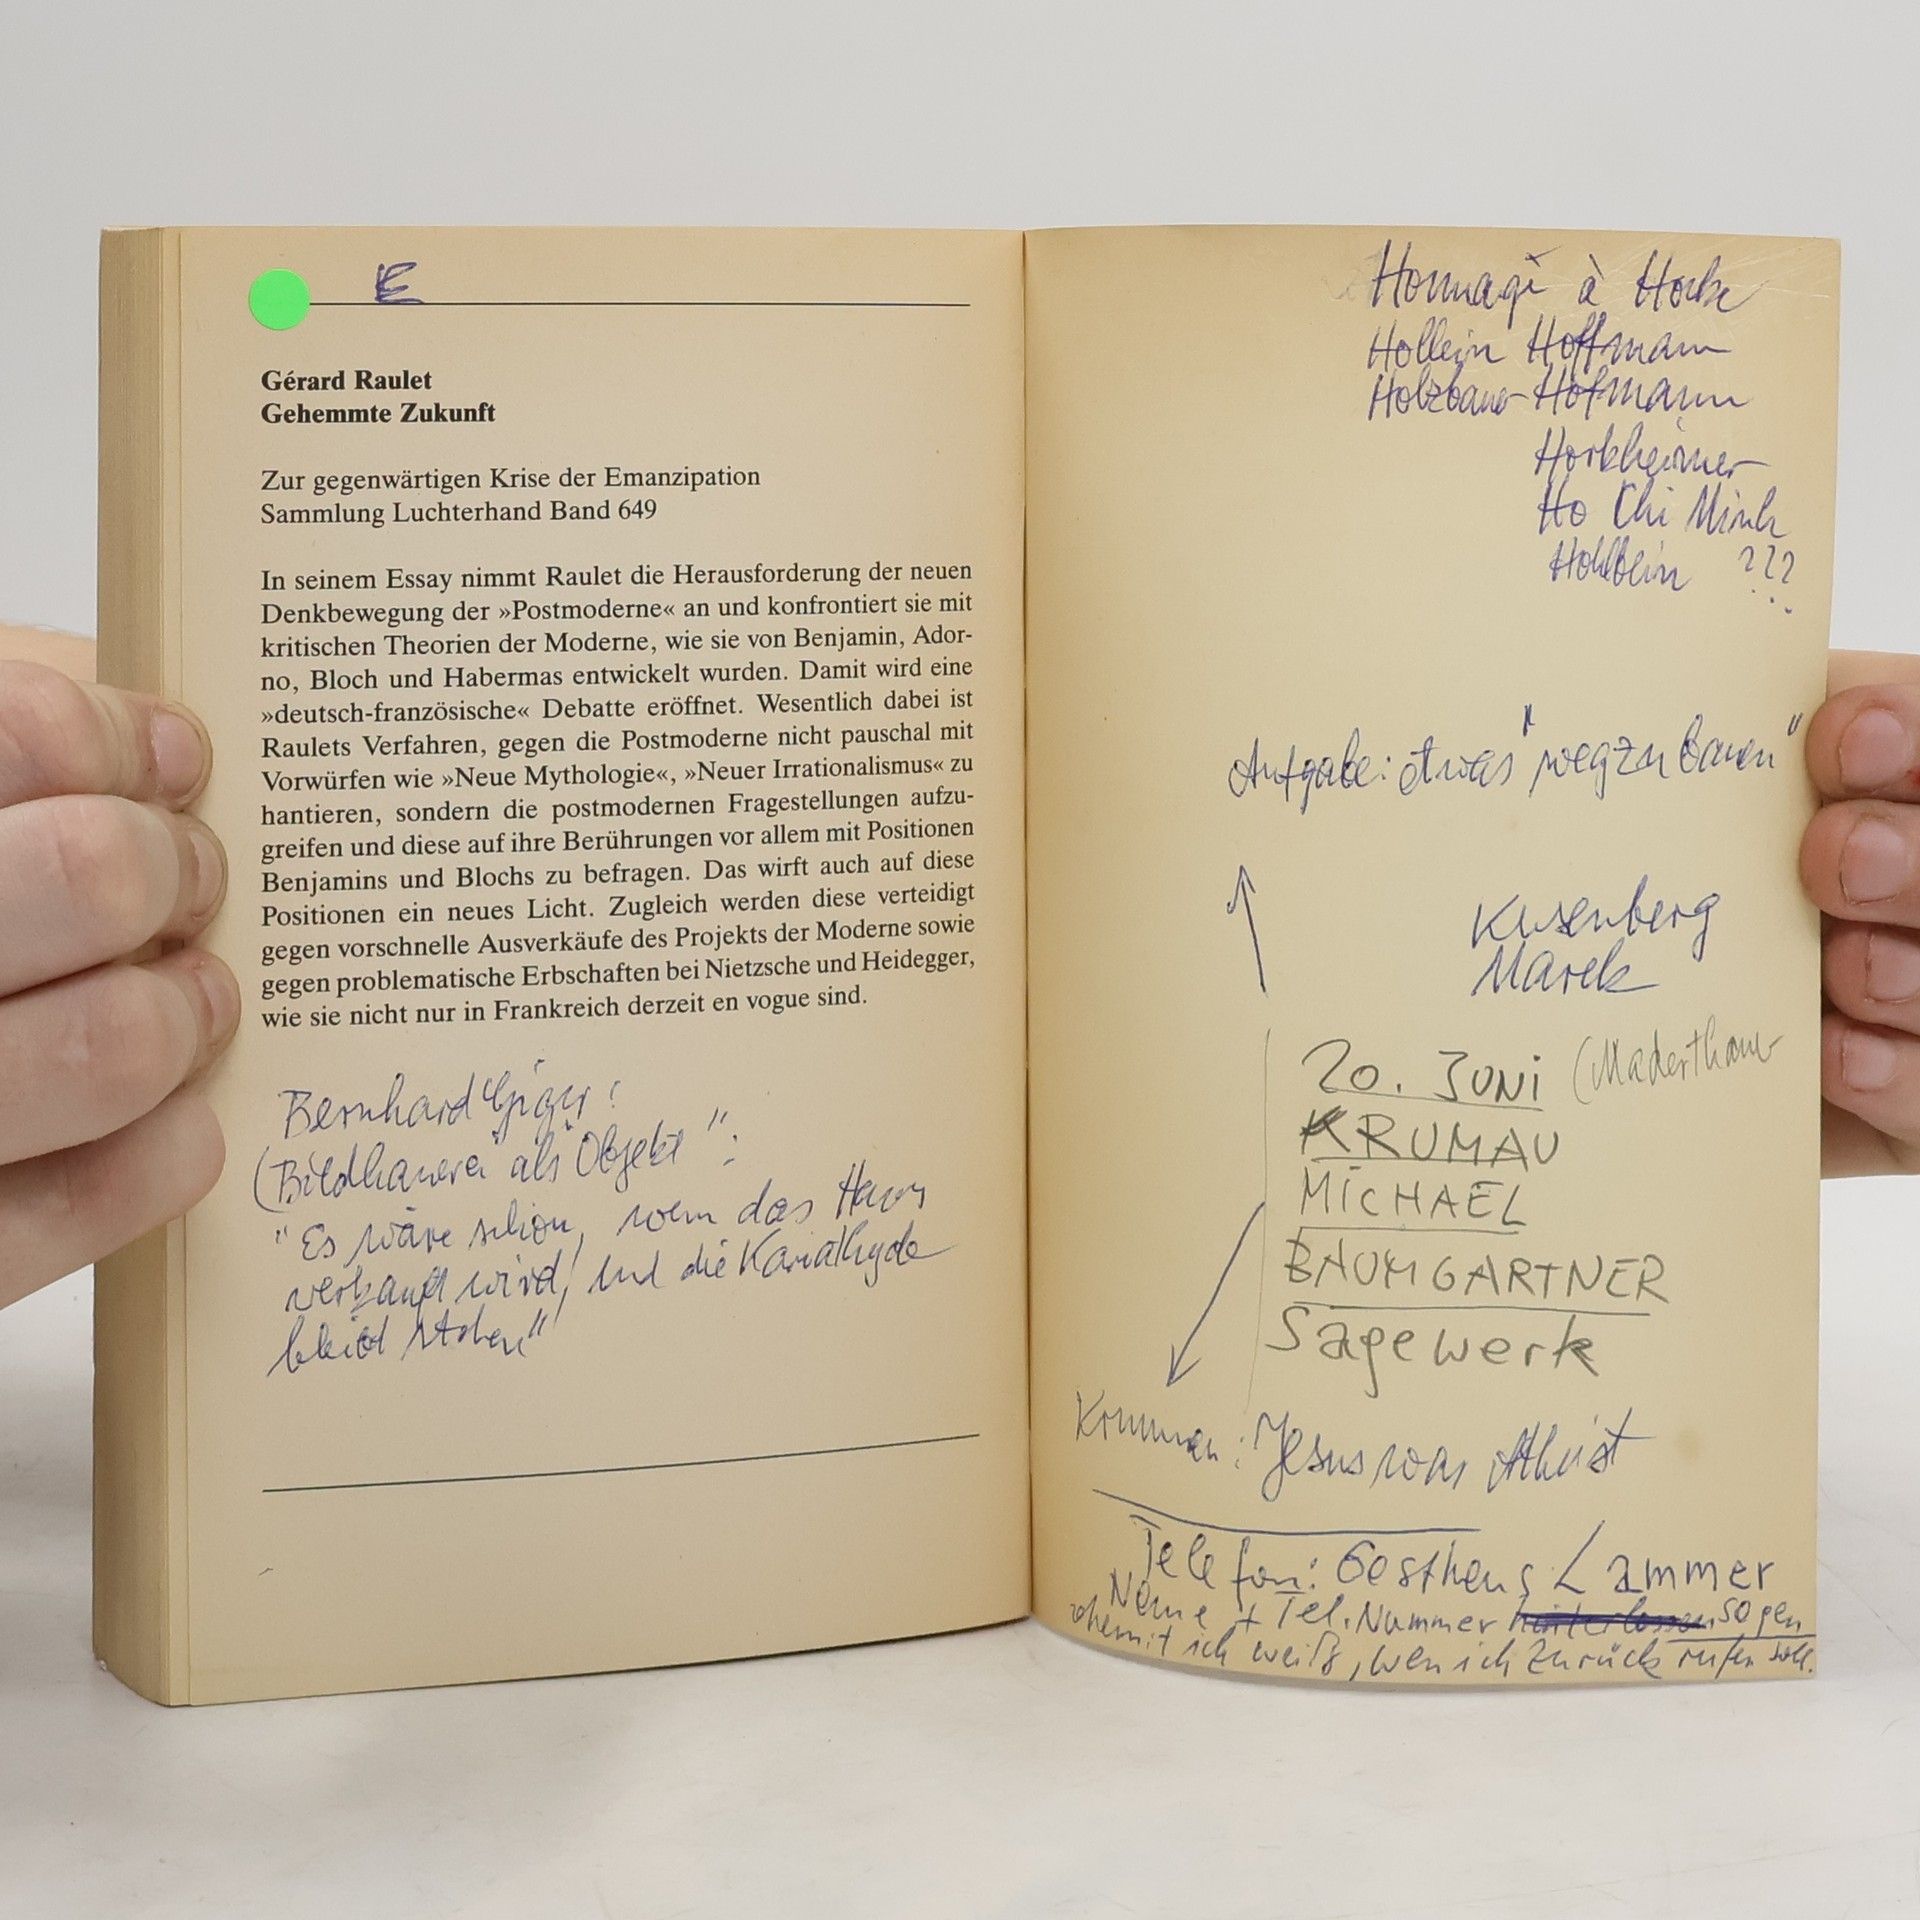 E
Gérard Raulet
Gehemmte Zukunft
Zur gegenwärtigen Krise der Emanzipation
Sammlung Luchterhand Band 649
In seinem Essay nimmt Raulet die Herausforderung der neuen
Denkbewegung der »Postmoderne« an und konfrontiert sie mit
kritischen Theorien der Moderne, wie sie von Benjamin, Ador-
no, Bloch und Habermas entwickelt wurden. Damit wird eine
»deutsch-französische« Debatte eröffnet. Wesentlich dabei ist
Raulets Verfahren, gegen die Postmoderne nicht pauschal mit
Vorwürfen wie »Neue Mythologie«, »Neuer Irrationalismus« zu
hantieren, sondern die postmodernen Fragestellungen aufzu-
greifen und diese auf ihre Berührungen vor allem mit Positionen
Benjamins und Blochs zu befragen. Das wirft auch auf diese
Positionen ein neues Licht. Zugleich werden diese verteidigt
gegen vorschnelle Ausverkäufe des Projekts der Moderne sowie
gegen problematische Erbschaften bei Nietzsche und Heidegger,
wie sie nicht nur in Frankreich derzeit en vogue sind.
Bernhard
(Bildhauerei als Objekt":
"Es wäre schön, wenn das Haus
verkauft wird, und die Kariathyde
bleibt stehen"
à
Hollein Hoffmann
Holzbauer Hofmann
Horkheimer
Ho Chi Minh
Hohlbein ???
Aufgabe: etwas "wegzubauen"
Kusenberg
Marek
20. JUNI (Maderthaner
KRUMAU
MICHAEL
BAUMGARTNER
Sägewerk
Jesus war Atheist
Telefon: Lammer
Name + Tel. Nummer sagen
ich weiß, wen ich zurück rufen soll.